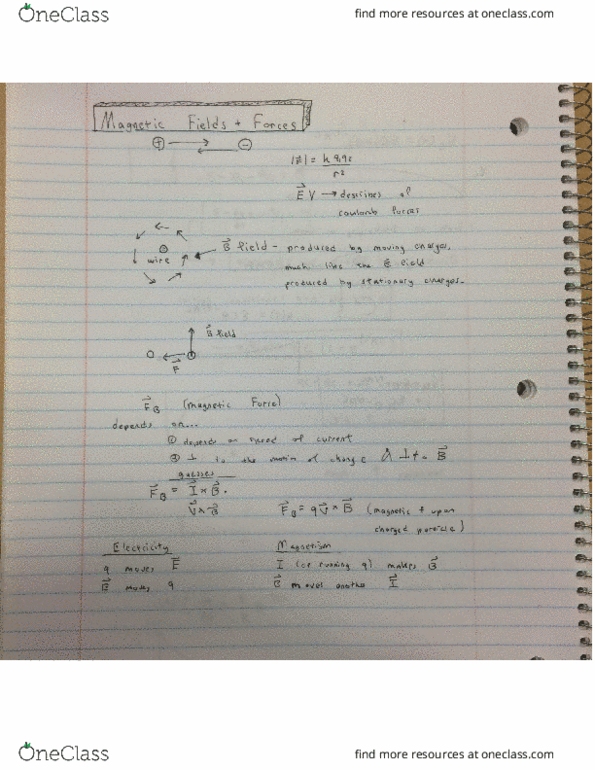 OneClass
find more resources at oneclass.com
Magnetic Fields + Forces
+ → ← -
|F| = k q1 q2 / r²
E V → describes of
coulomb forces
B field - produced by moving charges,
wire
much like the E field
produced by stationary charges.
B field
F
F_B (Magnetic Force)
depends on...
① depends on speed of current
② ⊥ to the motion of charge & ⊥ to B
guesses
F_B = I × B.
V × B
F_B = qV × B (magnetic upon
charged particle)
Electricity
Magnetism
q moves E
I (or running q) makes B
E moves q
B moves another I
OneClass
find more resources at oneclass.com